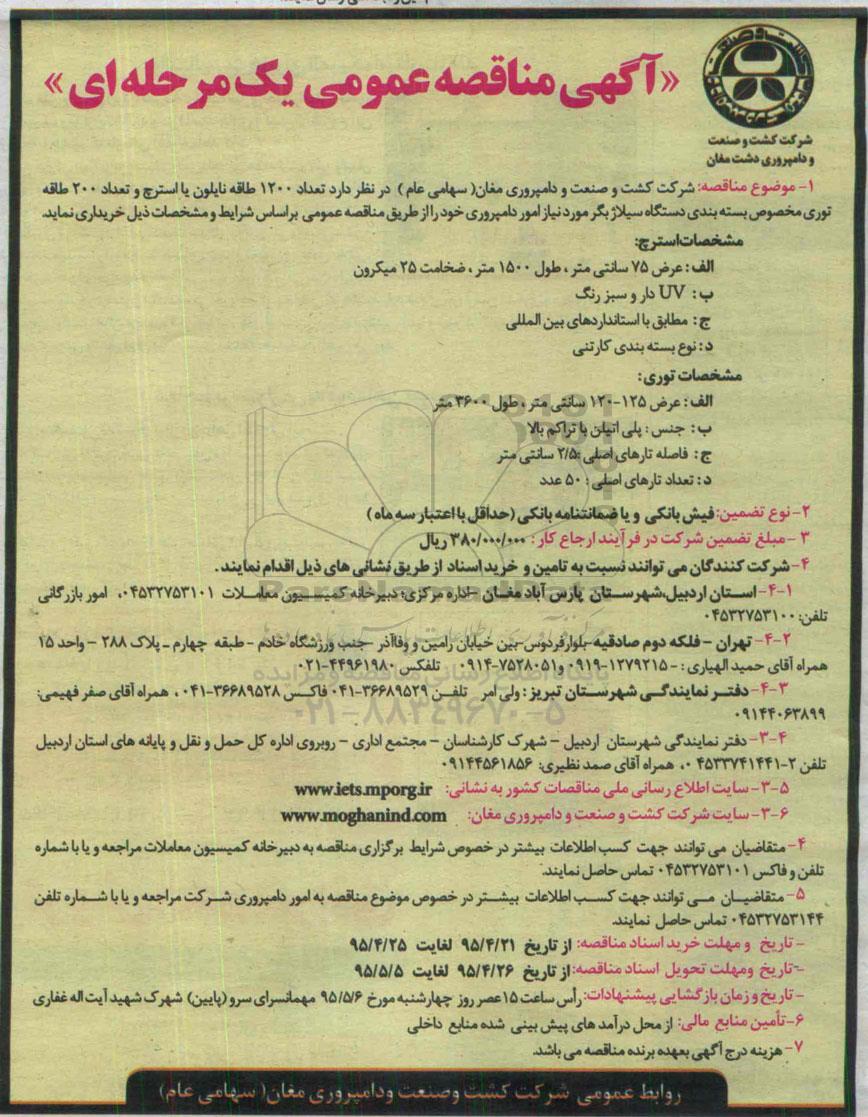 «آگهی مناقصه عمومی یک مرحله ای»
شرکت کشت و صنعت
و دامپروری دشت مغان
۱- موضوع مناقصه: شرکت کشت و صنعت و دامپروری مغان( سهامی عام ) در نظر دارد تعداد ۱۲۰۰ طاقه نایلون یا استرچ و تعداد ۲۰۰ طاقه
توری مخصوص بسته بندی دستگاه سیلاژ بگر مورد نیاز امور دامپروری خود را از طریق مناقصه عمومی براساس شرایط و مشخصات ذیل خریداری نماید.
مشخصات استرچ:
الف : عرض ۷۵ سانتی متر ، طول ۱۵۰۰ متر ، ضخامت ۲۵ میکرون
ب : UV دار و سبز رنگ
ج : مطابق با استانداردهای بین المللی
د : نوع بسته بندی کارتنی
مشخصات توری :
الف : عرض ۱۲۵-۱۲۰ سانتی متر ، طول ۳۶۰۰ متر
ب : جنس : پلی اتیلن با تراکم بالا
ج : فاصله تارهای اصلی :۲/۵ سانتی متر
د : تعداد تارهای اصلی : ۵۰ عدد
۲- نوع تضمین: فیش بانکی و یا ضمانتنامه بانکی (حداقل با اعتبار سه ماه )
۳ -مبلغ تضمین شرکت در فرآیند ارجاع کار : ۳۸۰/۰۰۰/۰۰۰ ریال
۴- شرکت کنندگان می توانند نسبت به تامین و خرید اسناد از طریق نشانی های ذیل اقدام نمایند .
۴-۱- استان اردبیل،شهرستان پارس آباد مغان -اداره مرکزی؛ دبیرخانه کمیسیون معاملات ۰۴۵۳۲۷۵۳۱۰۱، امور بازرگانی
تلفن: ۰۴۵۳۲۷۵۳۱۰۰
۴-۲- تهران - فلکه دوم صادقیه -بلوارفردوس-بین خیابان رامین و وفاآذر -جنب ورزشگاه خادم - طبقه چهارم - پلاک ۲۸۸ - واحد ۱۵
همراه آقای حمید الهیاری : -۱۲۷۹۲۱۵-۰۹۱۹ و۷۵۲۸۰۵۱-۰۹۱۴ تلفکس ۴۴۹۶۱۹۸۰-۰۲۱
۴-۳- دفتر نمایندگی شهرستان تبریز : ولی امر تلفن ۳۶۶۸۹۵۲۹-۰۴۱ فاکس ۳۶۶۸۹۵۲۸-۰۴۱ ، همراه آقای صفر فهیمی:
۰۹۱۴۴۰۶۳۸۹۹
۳-۴- دفتر نمایندگی شهرستان اردبیل - شهرک کارشناسان - مجتمع اداری - روبروی اداره کل حمل و نقل و پایانه های استان اردبیل
تلفن ۲-۰۴۵۳۳۷۴۱۴۴۱ ، همراه آقای صمد نظیری: ۰۹۱۴۴۵۶۱۸۵۶
۳-۵- سایت اطلاع رسانی ملی مناقصات کشور به نشانی: www.iets.mporg.ir
۳-۶- سایت شرکت کشت و صنعت و دامپروری مغان: www.moghanind.com
۴- متقاضیان می توانند جهت کسب اطلاعات بیشتر در خصوص شرایط برگزاری مناقصه به دبیرخانه کمیسیون معاملات مراجعه و یا با شماره
تلفن و فاکس ۰۴۵۳۲۷۵۳۱۰۱ تماس حاصل نمایند.
۵- متقاضیان می توانند جهت کسب اطلاعات بیشتر در خصوص موضوع مناقصه به امور دامپروری شرکت مراجعه و یا با شماره تلفن
۰۴۵۳۲۷۵۳۱۴۴ تماس حاصل نمایند.
- تاریخ و مهلت خرید اسناد مناقصه: از تاریخ ۹۵/۴/۲۱ لغایت ۹۵/۴/۲۵
-تاریخ ومهلت تحویل اسناد مناقصه: از تاریخ ۹۵/۴/۲۶ لغایت ۹۵/۵/۵
- تاریخ و زمان بازگشایی پیشنهادات: رأس ساعت ۱۵ عصر روز چهارشنبه مورخ ۹۵/۵/۶ مهمانسرای سرو (پایین) شهرک شهید آیت اله غفاری
۶-تأمین منابع مالی: از محل درآمد های پیش بینی شده منابع داخلی
۷- هزینه درج آگهی بعهده برنده مناقصه می باشد.
روابط عمومی شرکت کشت وصنعت ودامپروری مغان( سهامی عام)
۰۲۱-۸۸۳۴۹۶۷۰-۵